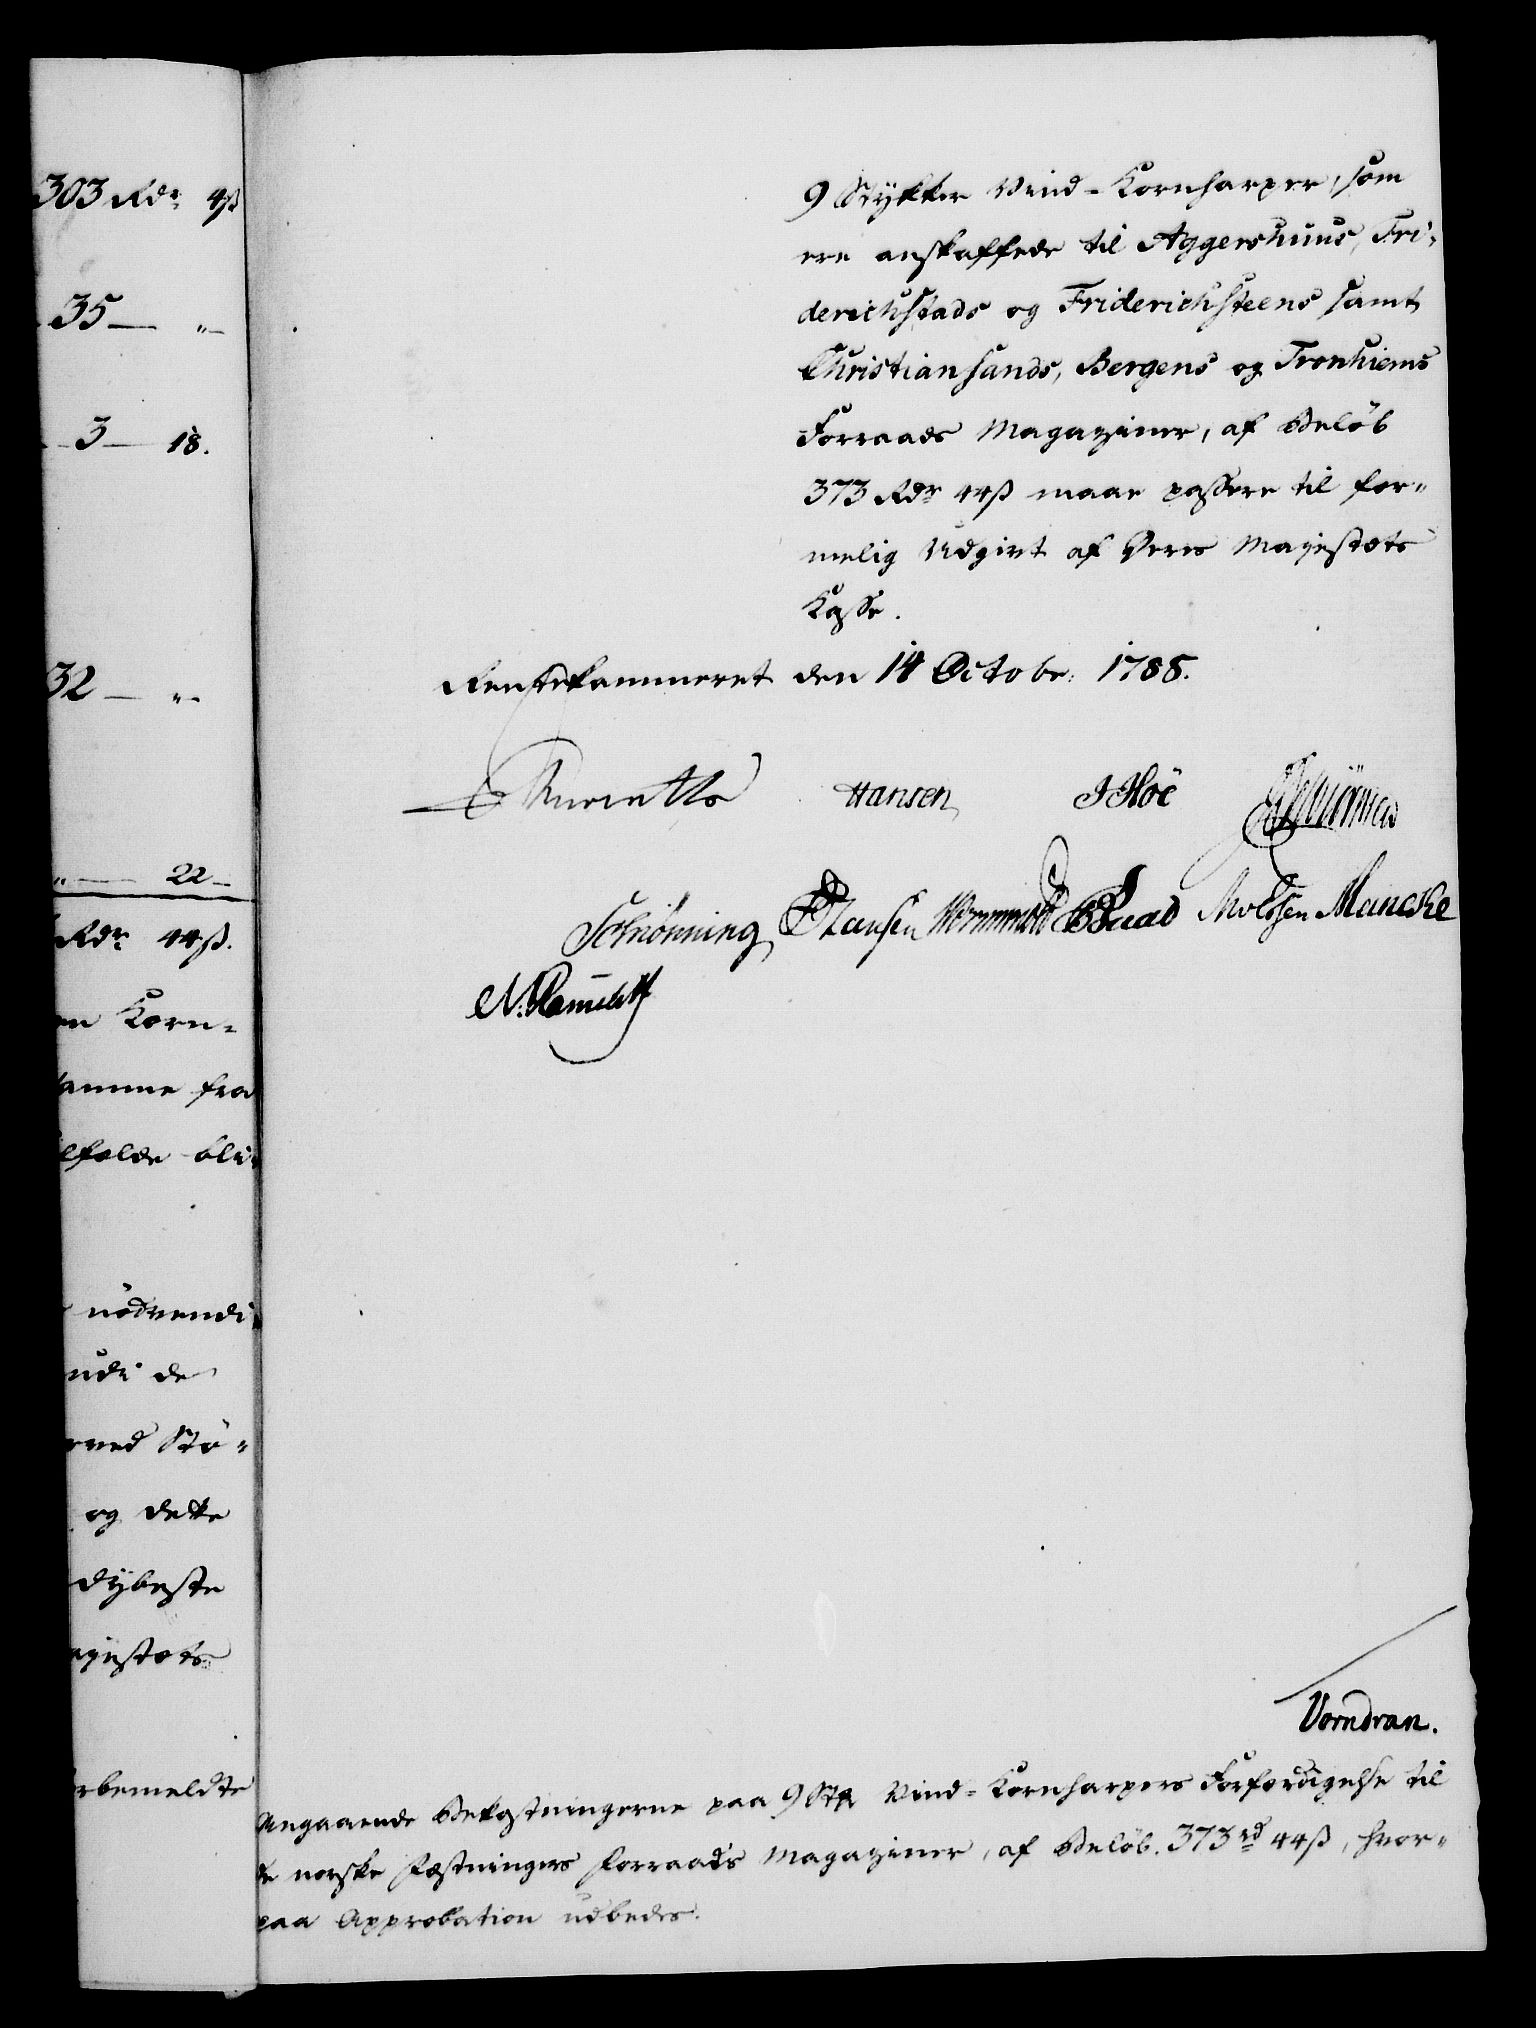 303 Rdr 4ß
35 — "—
3 — 18.
32 — "—
" — 22 —
Rdr 44ß.
en Korn-
samme fra
lfælde bli-
nödvendi
udi de
rved Stö-
og dette
dybeste
ajestæts
rbemeldte
9 Stykker Vind-Kornharper, som
ere anskaffede til Aggershuus, Fri-
derichstads og Friderichsteens samt
Christiansands, Bergens og Tronhiems
Forraads Magaziner, af Beløb
373 Rdr 44ß maae passere til for-
melig Udgivt af Deres Majestæts
Kasse.
Rentekammeret den 14 Octobr: 1788.
Hansen J Höe
Schiönning Hansen Wormwold Maneske
Vorndran.
Angaaende Bekostningerne paa 9 Stk Vind-Kornharpers Forfærdigelse til
de norske Fæstningers Forraads Magaziner, af Beløb 373 rd 44ß, hvor-
paa Approbation udbedes.